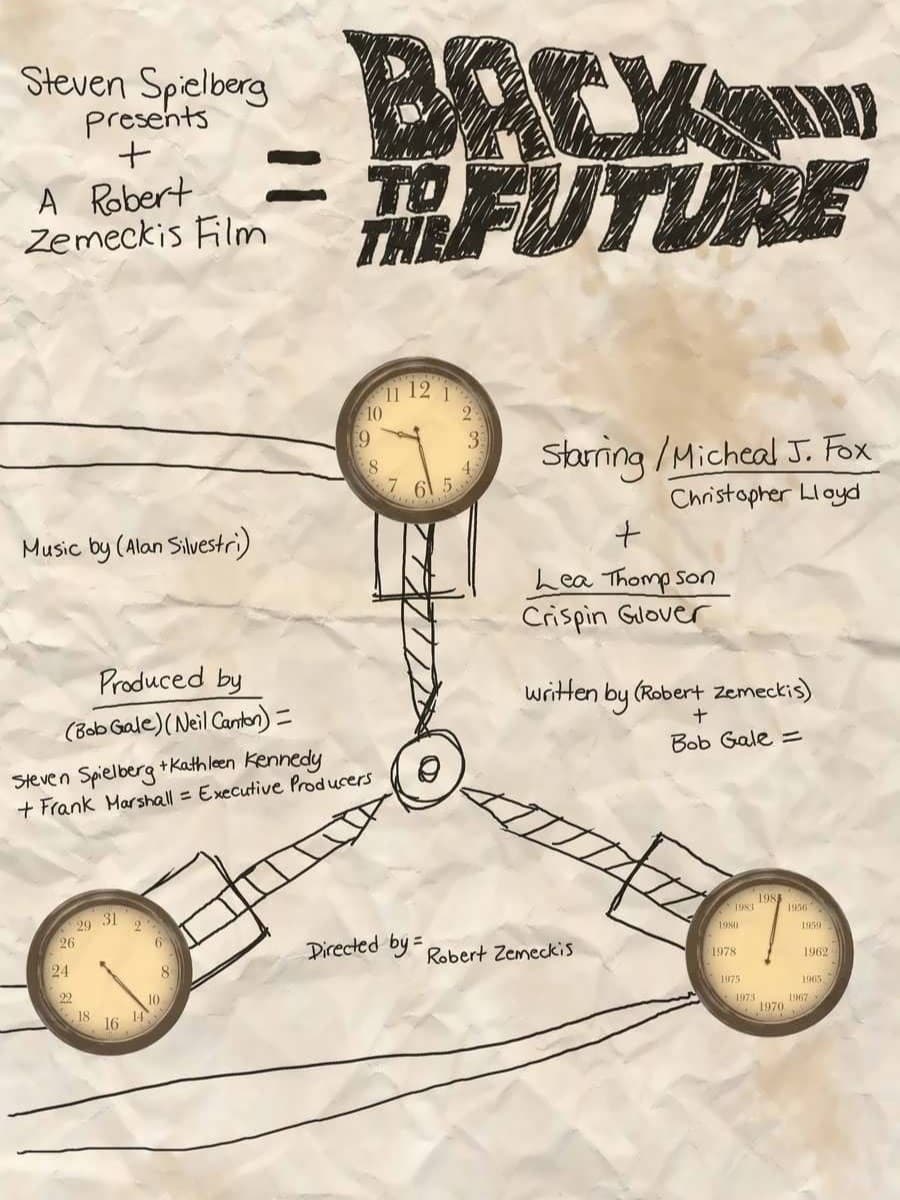 Steven Spielberg
presents
+
A Robert
Zemeckis Film
=
BACK
TO
THE
FUTURE
11 12 1
10 2
9 3
8 4
7 6 5
Starring / Micheal J. Fox
Christopher Lloyd
+
Lea Thompson
Crispin Glover
Music by (Alan Silvestri)
Produced by
(Bob Gale) (Neil Canton) =
Steven Spielberg + Kathleen Kennedy
+ Frank Marshall = Executive Producers
written by (Robert Zemeckis)
+
Bob Gale =
29 31 2
26 6
24 8
22 10
18 16 14
Directed by = Robert Zemeckis
1983 1985 1956
1980 1959
1978 1962
1975 1965
1973 1970 1967